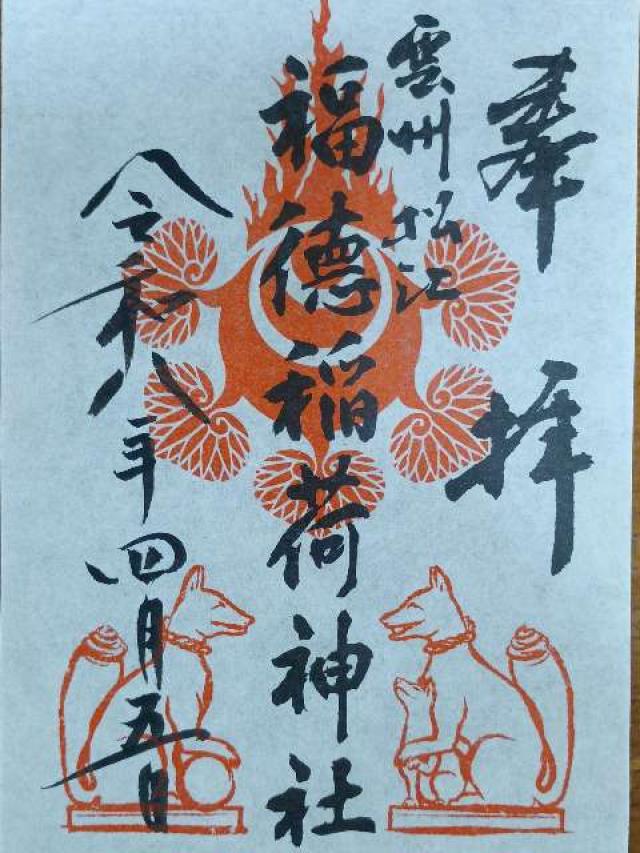 奉拝
雲州松江
福徳稲荷神社
令和八年四月五日